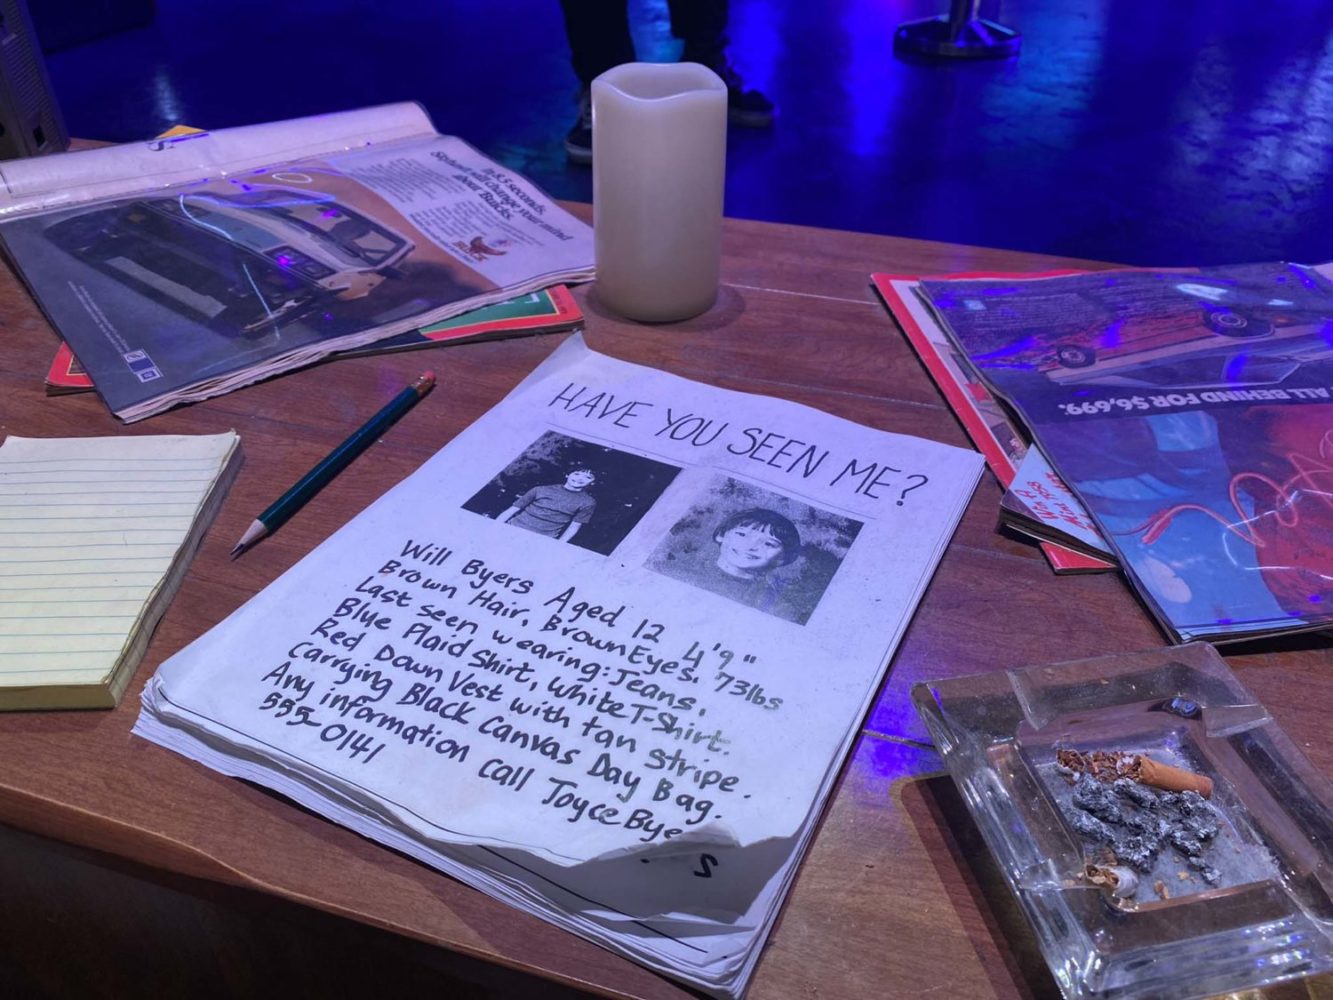 HAVE YOU SEEN ME?
Will Byers Aged 12 4'9"
Brown Hair, Brown Eyes, 73lbs
Last seen wearing: Jeans,
Blue Plaid Shirt, White T-Shirt.
Red Down Vest with tan stripe.
Carrying Black Canvas Day Bag.
Any information call Joyce Bye
555-0141
S
In 8.5 seconds,
Skyhawk will change your mind
about Buicks.
ALL BEHIND FOR $6,699.